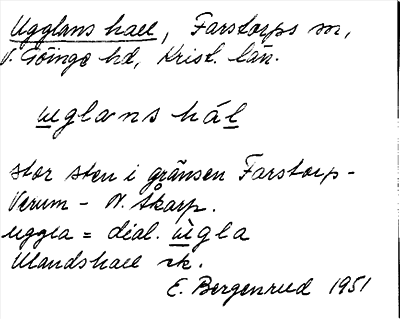 Ugglans hall, Farstorps sn,
V. Göinge hd, Krist. län.
u̲glans há l̲
stor sten i gränsen Farstorp-
Verum - N. Åkarp.
uggla = dial. ù̲gla
Ulandshall rk.
E. Bergenrud 1951